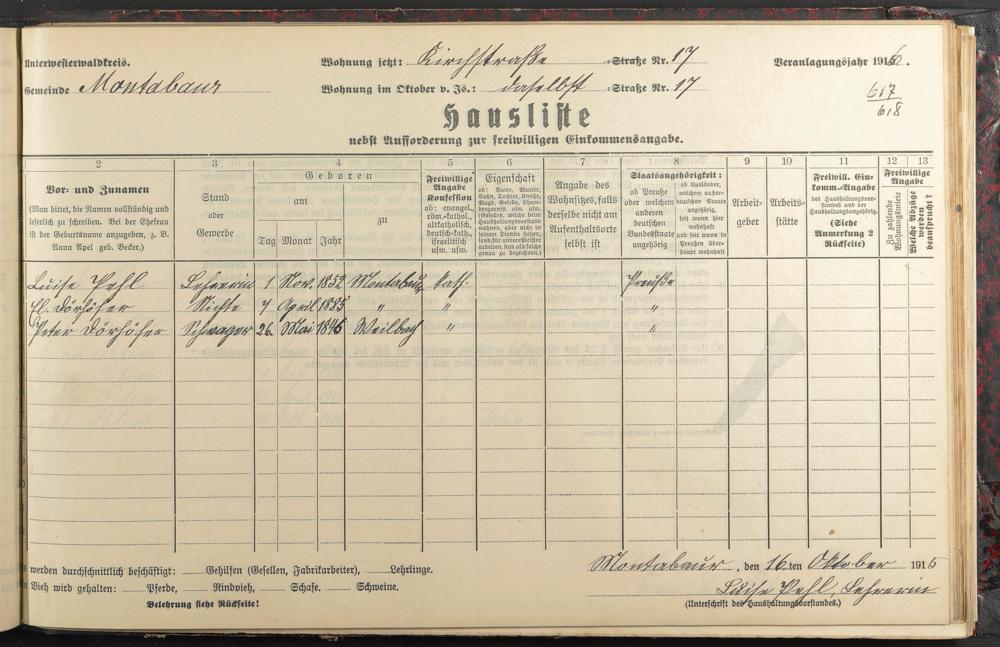 Unterwesterwaldkreis.
Wohnung jetzt: Kirchstraße -Straße Nr. 17
Veranlagungsjahr 1916.
Gemeinde Montabaur
Wohnung im Oktober v. Js.: daselbst -Straße Nr. 17
617
618
Hausliste
nebst Aufforderung zur freiwilligen Einkommensangabe.
2 3 4 5 6 7 8 9 10 11 12 13
Vor- und Zunamen
(Man bittet, die Namen vollständig und
leserlich zu schreiben. Bei der Ehefrau
ist der Geburtsname anzugeben, z. B.
Anna Apel geb. Becker.)
Stand
oder
Gewerbe
Geboren
am
zu
Tag Monat Jahr
Freiwillige
Angabe
Konfession
ob: evangel.,
röm.-kathol.,
altkatholisch,
deutsch-kath.,
israelitisch
usw. usw.
Eigenschaft
ob: Vater, Mutter,
Sohn, Tochter, Knecht,
Magd, Geselle, Cham-
bregarnist usw. usw.
(Gesellen, welche beim
Haushaltungsvorstand
wohnen, aber nicht in
seinem Dienste stehen,
sond. für andere Meister
arbeiten, sind als solche
genau zu bezeichnen.)
Angabe des
Wohnsitzes, falls
derselbe nicht am
Aufenthaltsorte
selbst ist
Staatsangehörigkeit:
ob Preuße
oder welchem
anderen
deutschen
Bundesstaate
angehörig
ob Ausländer,
welchem außer-
deutschen Staate
angehörig,
seit wann hier
wohnhaft
und seit wann in
Preußen über-
haupt wohnhaft
Arbeit-
geber
Arbeits-
stätte
Freiwill. Ein-
komm.-Angabe
des Haushaltungsvor-
standes und der
Haushaltungsangehörig.
(Siehe
Anmerkung 2
Rückseite)
Freiwillige
Angabe
Zu zahlende
Wohnungsmiete
Welche Abzüge
werden
beansprucht?
Luise Pehl Lehrerin 1 Nov. 1852 Montabaur kath. Preuße
El. Dörhöfer Nichte 7 April 1885 " " "
Peter Dörhöfer Schwager 26. Mai 1846 Weilbach " "
werden durchschnittlich beschäftigt: Gehilfen (Gesellen, Fabrikarbeiter), Lehrlinge.
Vieh wird gehalten: Pferde, Rindvieh, Schafe. Schweine.
Belehrung siehe Rückseite!
Montabaur, den 16 ten Oktober 1915
Luise Pehl, Lehrerin
(Unterschrift des Haushaltungsvorstandes.)